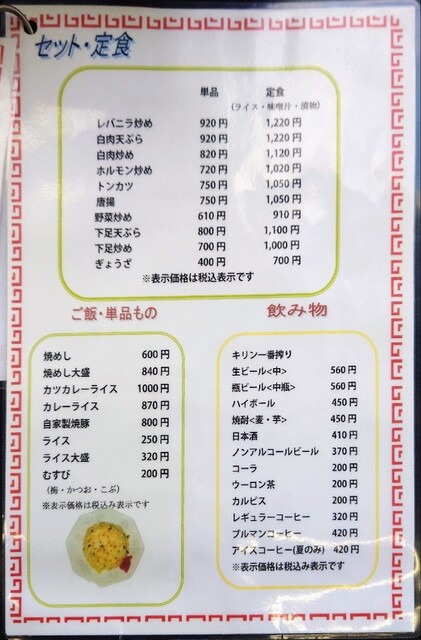 セット・定食
単品 定食
(ライス・味噌汁・漬物)
レバニラ炒め 920円 1,220円
白肉天ぷら 920円 1,220円
白肉炒め 820円 1,120円
ホルモン炒め 720円 1,020円
トンカツ 750円 1,050円
唐揚 750円 1,050円
野菜炒め 610円 910円
下足天ぷら 800円 1,100円
下足炒め 700円 1,000円
ぎょうざ 400円 700円
※表示価格は税込表示です
ご飯・単品もの
焼めし 600円
焼めし大盛 840円
カツカレーライス 1000円
カレーライス 870円
自家製焼豚 800円
ライス 250円
ライス大盛 320円
むすび 200円
(梅・かつお・こぶ)
※表示価格は税込み表示です
飲み物
キリン一番搾り
生ビール<中> 560円
瓶ビール<中瓶> 560円
ハイボール 450円
焼酎<麦・芋> 450円
日本酒 410円
ノンアルコールビール 370円
コーラ 200円
ウーロン茶 200円
カルピス 200円
レギュラーコーヒー 320円
ブルマンコーヒー 420円
アイスコーヒー(夏のみ) 420円
※表示価格は税込み表示です